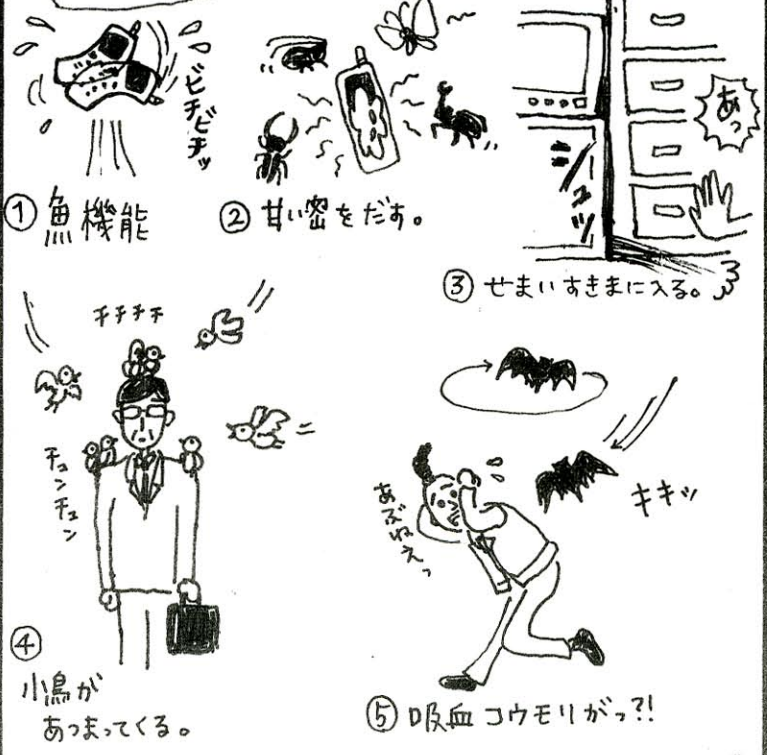 ビチビチッ
① 魚機能
② 甘い密をだす。
ニュッ
あっ
③ せまいすきまに入る。
チチチチ
チュンチュン
④
小鳥が
あつまってくる。
キキッ
あぶねえっ
⑤ 吸血コウモリがっ?!